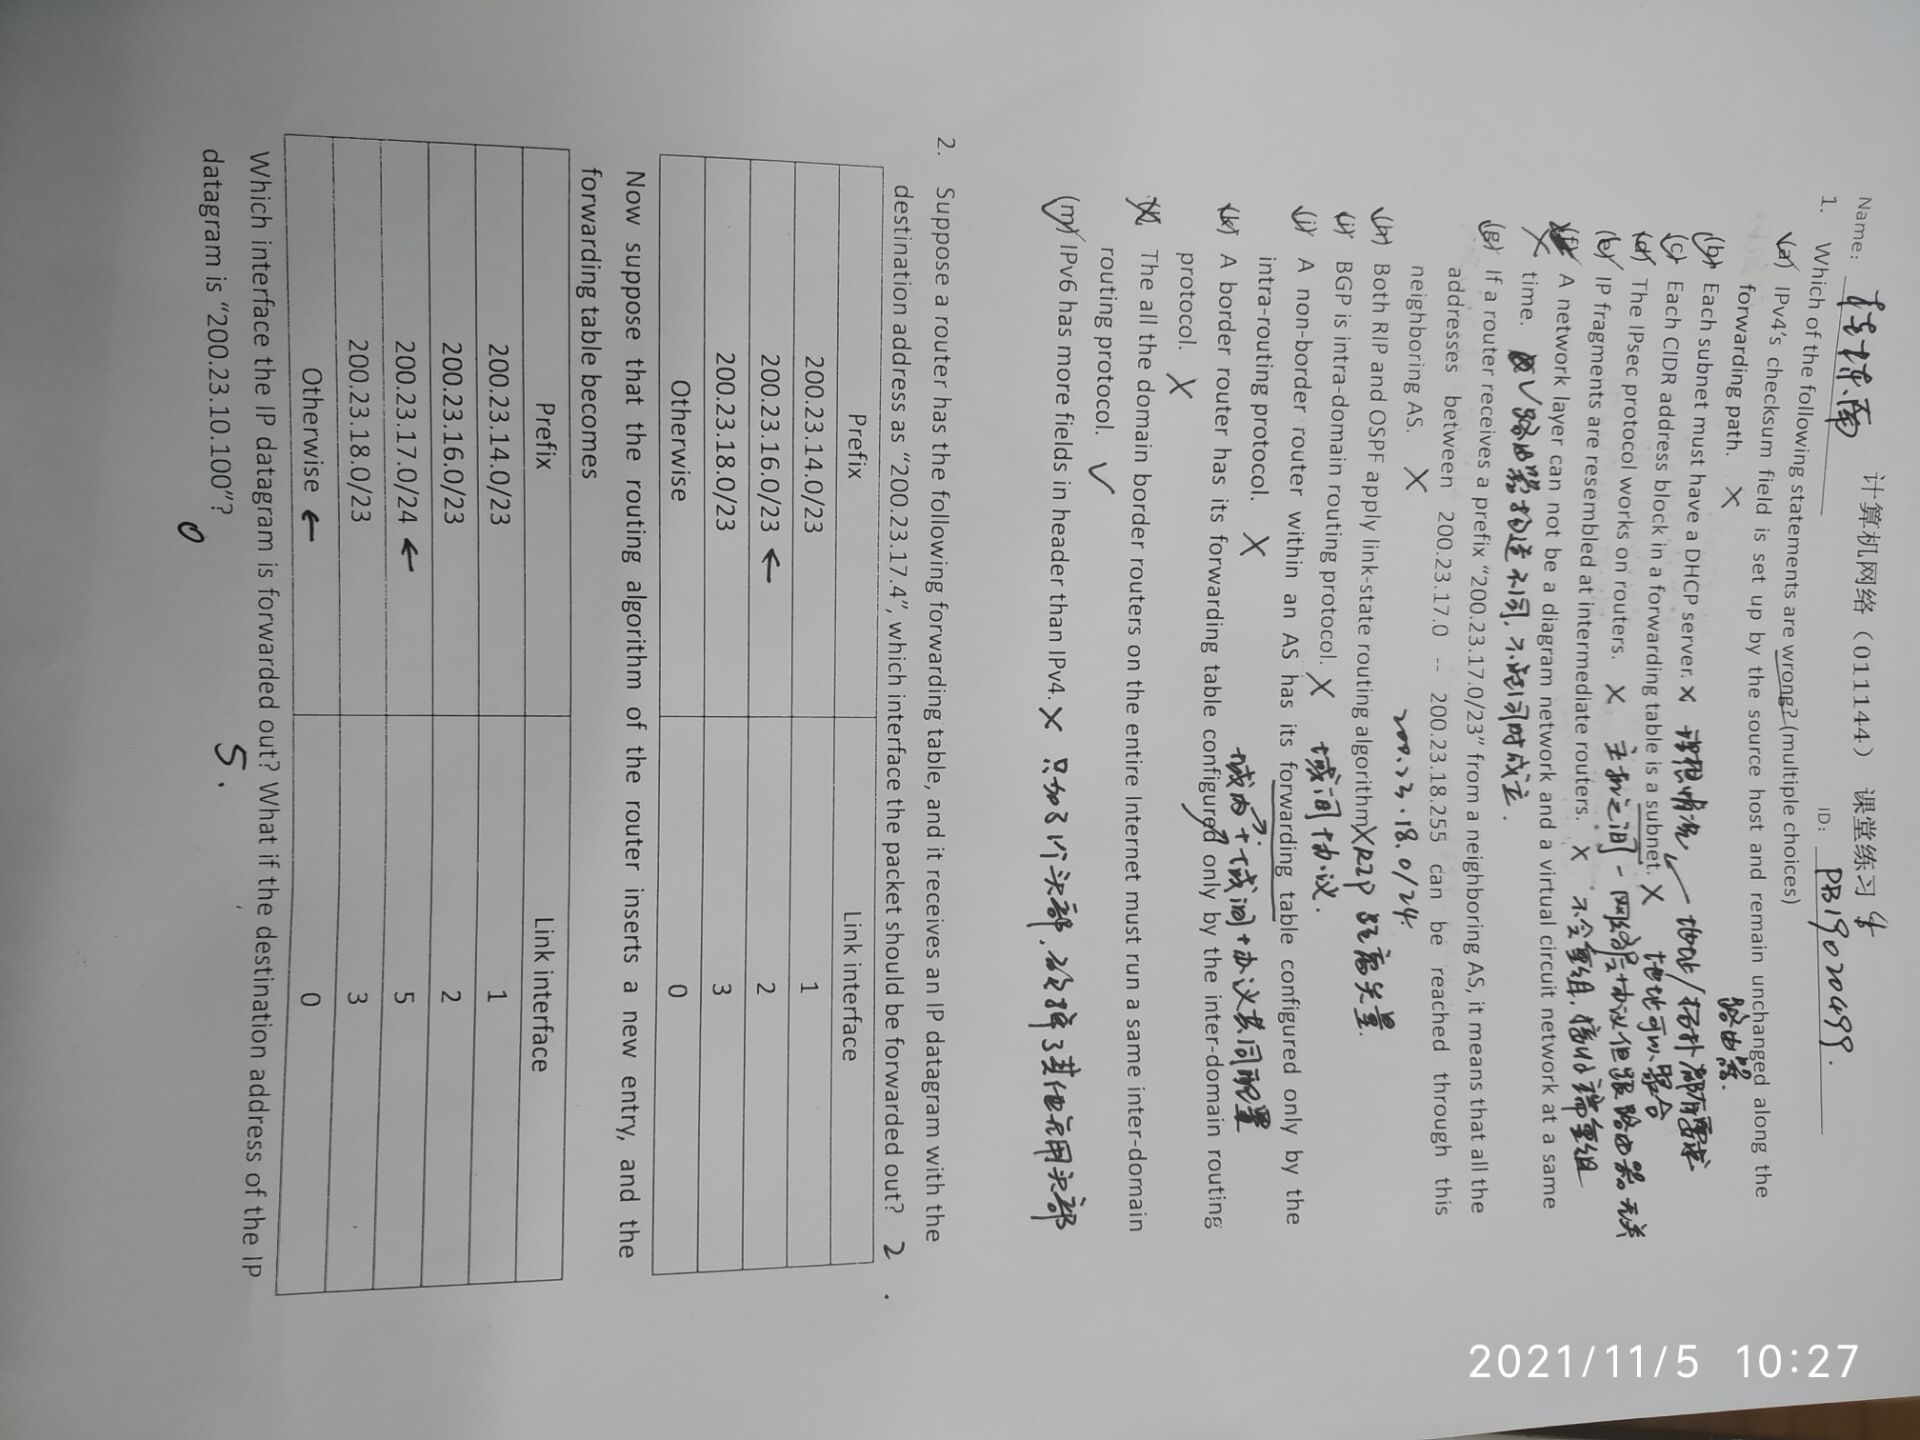 Name: 桂栋南 计算机网络（011144） 课堂练习
ID: PB19020499.
1. Which of the following statements are wrong? (multiple choices)
(a) IPv4's checksum field is set up by the source host and remain unchanged along the
forwarding path. × 路由器.
(b) Each subnet must have a DHCP server. × 理想情况 地址/拓扑都有要求
(c) Each CIDR address block in a forwarding table is a subnet. × 地址可以聚合
(d) The IPsec protocol works on routers. × 主机之间-网络层协议但跟路由器无关
(e) IP fragments are resembled at intermediate routers. × 不会重组, 接收端重组
(f) A network layer can not be a diagram network and a virtual circuit network at a same
time. ✓ 路由器构造不同, 不能同时成立.
(g) If a router receives a prefix “200.23.17.0/23” from a neighboring AS, it means that all the
addresses between 200.23.17.0 -- 200.23.18.255 can be reached through this
neighboring AS. × 200.23.18.0/24.
(h) Both RIP and OSPF apply link-state routing algorithm × RIP 距离矢量.
(i) BGP is intra-domain routing protocol. × 域间协议.
(j) A non-border router within an AS has its forwarding table configured only by the
intra-routing protocol. × 域内+域间协议共同配置
(k) A border router has its forwarding table configured only by the inter-domain routing
protocol. ×
The all the domain border routers on the entire Internet must run a same inter-domain
routing protocol. ✓
(m) IPv6 has more fields in header than IPv4. × 只加了1个头部, 砍掉了其他无用头部
2. Suppose a router has the following forwarding table, and it receives an IP datagram with the
destination address as “200.23.17.4”, which interface the packet should be forwarded out? 2 .
Prefix Link interface
200.23.14.0/23 1
200.23.16.0/23 ← 2
200.23.18.0/23 3
Otherwise 0
Now suppose that the routing algorithm of the router inserts a new entry, and the
forwarding table becomes
Prefix Link interface
200.23.14.0/23 1
200.23.16.0/23 2
200.23.17.0/24 ← 5
200.23.18.0/23 3
Otherwise ← 0
Which interface the IP datagram is forwarded out? What if the destination address of the IP
datagram is “200.23.10.100”? 5.
0
2021/11/5 10:27